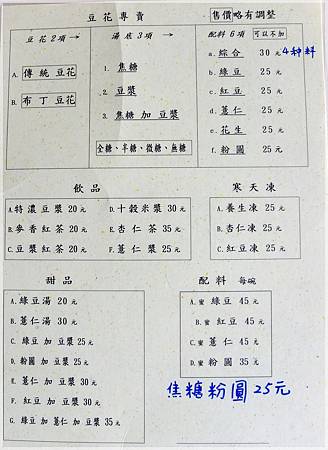 豆花專賣
售價略有調整
豆花2項→
A. 傳統 豆花
B. 布丁豆花
湯底3項→
1. 焦糖
2. 豆漿
3. 焦糖 加 豆漿
全糖、半糖、微糖、無糖
配料6項 可以不加
a. 綜合 30元 4种料
b. 綠豆 25元
c. 紅豆 25元
d. 薏仁 25元
e. 花生 25元
f. 粉圓 25元
飲品
A.特濃豆漿 20元
B.麥香紅茶 20元
C.豆漿紅茶 20元
D.十穀米漿 30元
E.杏仁茶 35元
F.薏仁漿 25元
寒天凍
A.養生凍 25元
B.杏仁凍 25元
C.紅豆凍 25元
甜品
A.綠豆湯 20元
B.薏仁湯 30元
C.綠豆 加 豆漿 25元
D.粉圓 加 豆漿 25元
E.薏仁 加 豆漿 30元
F.紅豆 加 豆漿 30元
G.綠豆 加 薏仁 加 豆漿 35元
配料 每碗
A.蜜 綠豆 45元
B.蜜 紅豆 45元
C.蜜 薏仁 45元
D.蜜 粉圓 35元
焦糖粉圓25元